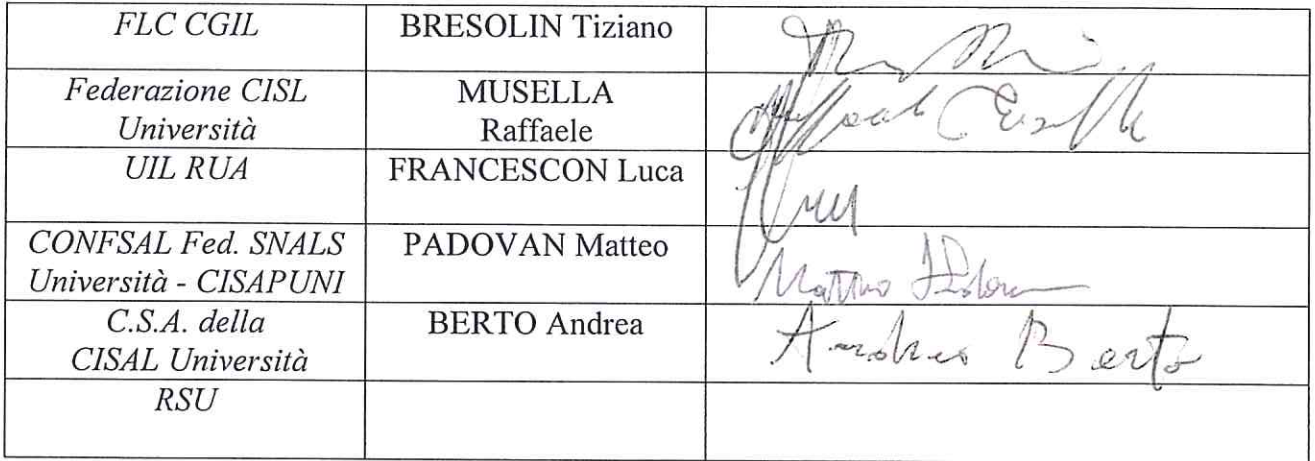 FLC CGIL
BRESOLIN Tiziano
Federazione CISL
Università
MUSELLA
Raffaele
UIL RUA
FRANCESCON Luca
CONFSAL Fed. SNALS
Università - CISAPUNI
PADOVAN Matteo
C.S.A. della
CISAL Università
BERTO Andrea
Andrea Berto
RSU